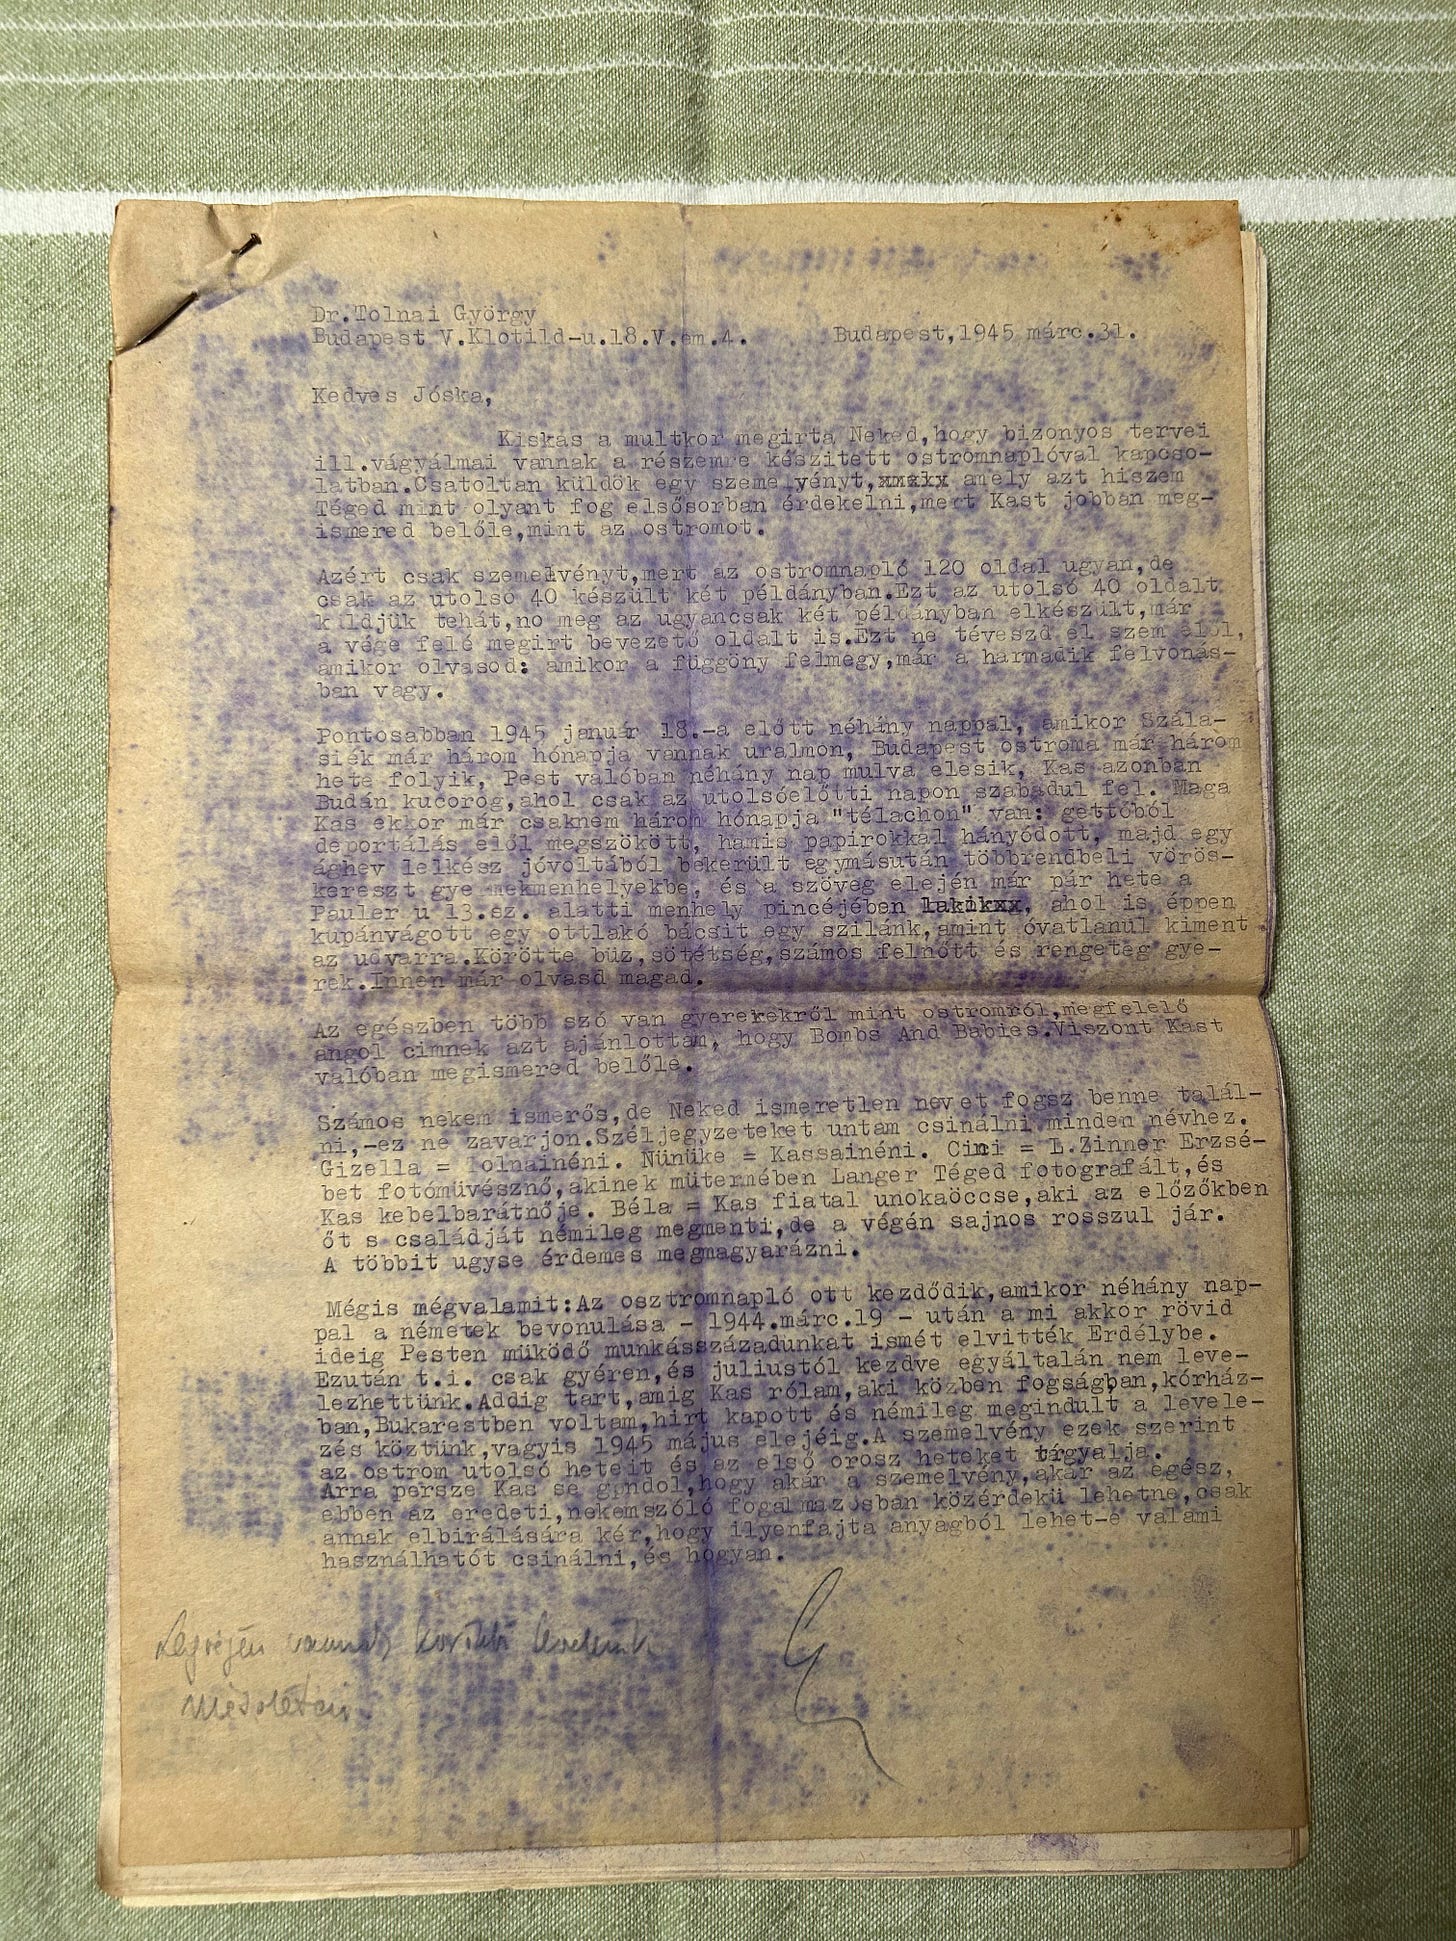 Dr.Tolnai György
Budapest V.Klotild-u.18.V.em.4. Budapest,1945 márc.31.
Kedves Jóska,
Kiskas a multkor megirta Neked,hogy bizonyos tervei
ill.vágyálmai vannak a részemre készitett ostromnaplóval kapcso-
latban.Csatoltan küldök egy szemelvényt,xxxixx amely azt hiszem
Téged mint olyant fog elsősorban érdekelni,mert Kast jobban meg-
ismered belőle,mint az ostromot.
Azért csak szemelvényt,mert az ostromnapló 120 oldal ugyan,de
csak az utolsó 40 készült két példányban.Ezt az utolsó 40 oldalt
küldjük tehát,no meg az ugyancsak két példányban elkészült,már
a vége felé megirt bevezető oldalt is.Ezt ne téveszd el szem elől,
amikor olvasod: amikor a függöny felmegy,már a harmadik felvonás-
ban vagy.
Pontosabban 1945 január 18.-a előtt néhány nappal, amikor Szála-
siék már három hónapja vannak uralmon, Budapest ostroma már három
hete folyik, Pest valóban néhány nap mulva elesik, Kas azonban
Budán kucorog,ahol csak az utolsóelőtti napon szabadul fel. Maga
Kas ekkor már csaknem három hónapja "télachon" van: gettóból
deportálás elől megszökött, hamis papirokkal hányódott, majd egy
ághev lelkész jóvoltából bekerült egymásután többrendbeli vörös-
kereszt gye mekmenhelyekbe, és a szöveg elején már pár hete a
Pauler u 13.sz. alatti menhely pincéjében lakikxx, ahol is éppen
kupánvágott egy ottlakó bácsit egy szilánk,amint óvatlanul kiment
az udvarra.Körötte büz,sötétség,számos felnőtt és rengeteg gye-
rek.Innen már olvasd magad.
Az egészben több szó van gyerekekről mint ostromról,megfelelő
angol cimnek azt ajánlottam, hogy Bombs And Babies.Viszont Kast
valóban megismered belőle.
Számos nekem ismerős,de Neked ismeretlen nevet fogsz benne talál-
ni,-ez ne zavarjon.Széljegyzeteket untam csinálni minden névhez.
Gizella = Tolnainéni. Nünüke = Kassainéni. Cini = L.Zinner Erzsé-
bet fotómüvésznő,akinek mütermében Langer Téged fotografált,és
Kas kebelbarátnője. Béla = Kas fiatal unokaöccse,aki az előzőkben
őt s családját némileg megmenti,de a végén sajnos rosszul jár.
A többit ugyse érdemes megmagyarázni.
Mégis mégvalamit:Az osztromnapló ott kezdődik,amikor néhány nap-
pal a németek bevonulása - 1944.márc.19 - után a mi akkor rövid
ideig Pesten müködő munkásszázadunkat ismét elvitték Erdélybe.
Ezután t.i. csak gyéren,és juliustól kezdve egyáltalán nem leve-
lezhettünk.Addig tart,amig Kas rólam,aki közben fogságban,kórház-
ban,Bukarestben voltam,hirt kapott és némileg megindult a levele-
zés köztünk,vagyis 1945 május elejéig.A szemelvény ezek szerint
az ostrom utolsó heteit és az első orosz heteket tárgyalja.
Arra persze Kas se gondol,hogy akár a szemelvény,akár az egész,
ebben az eredeti,nekemszóló fogalmazásban közérdekü lehetne,csak
annak elbirálására kér,hogy ilyenfajta anyagból lehet-e valami
használhatót csinálni,és hogyan.